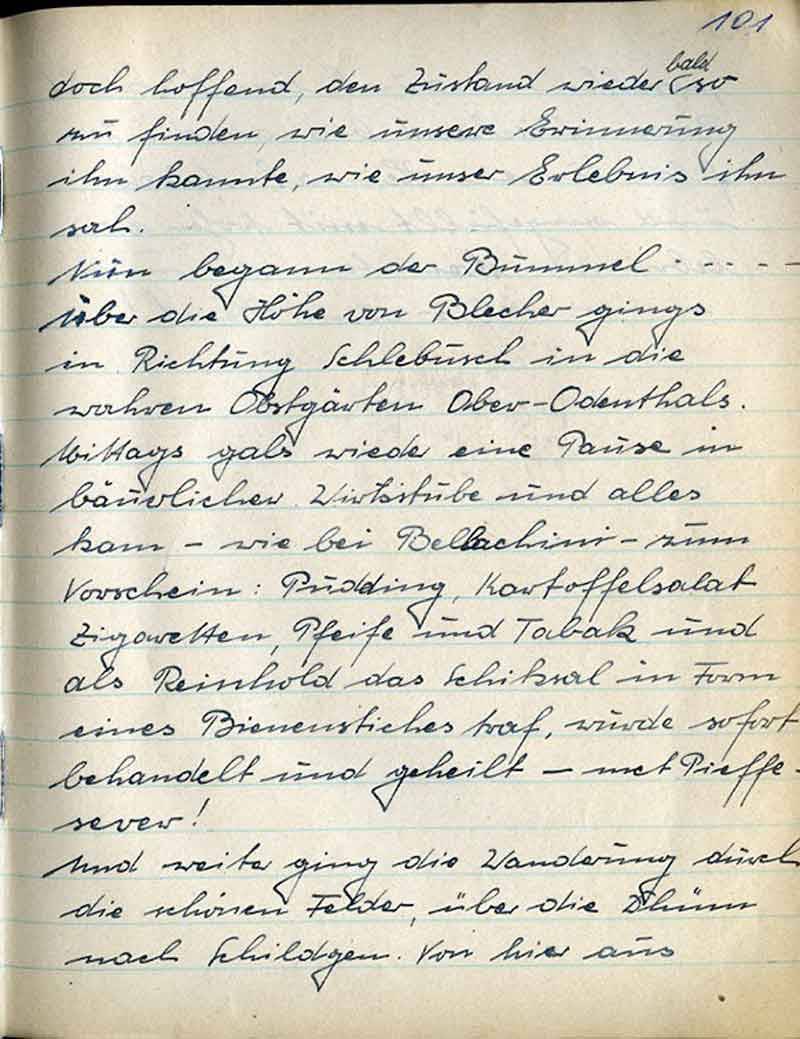 101
doch hoffend, den Zustand wieder bald so
zu finden, wie unsere Erinnerung
ihn kannte, wie unser Erlebnis ihn
sah.
Nun begann der Bummel . - - - -
Über die Höhe von Blecher gings
in Richtung Schlebusch in die
wahren Obstgärten Ober-Odenthals.
Mittags gabs wieder eine Pause in
bäuerlicher Wirtsstube und alles
kam - wie bei Bellachini - zum
Vorschein: Pudding, Kartoffelsalat
Zigaretten, Pfeife und Tabak und
als Reinhold das Schiksal in Form
eines Bienenstiches traf, wurde sofort
behandelt und geheilt - met Pieffe-
sever!
Und weiter ging die Wanderung durch
die schönen Felder, über die Dhünn
nach Schildgen. Von hier aus